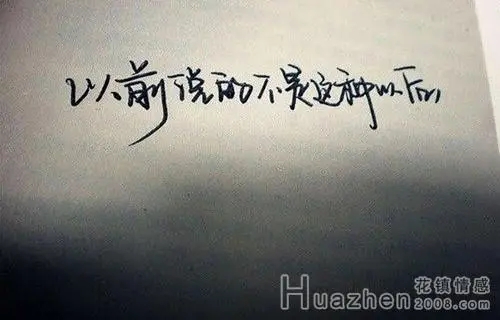 以前说的不是这种以后
Huazhen 花镇情感
2008.com